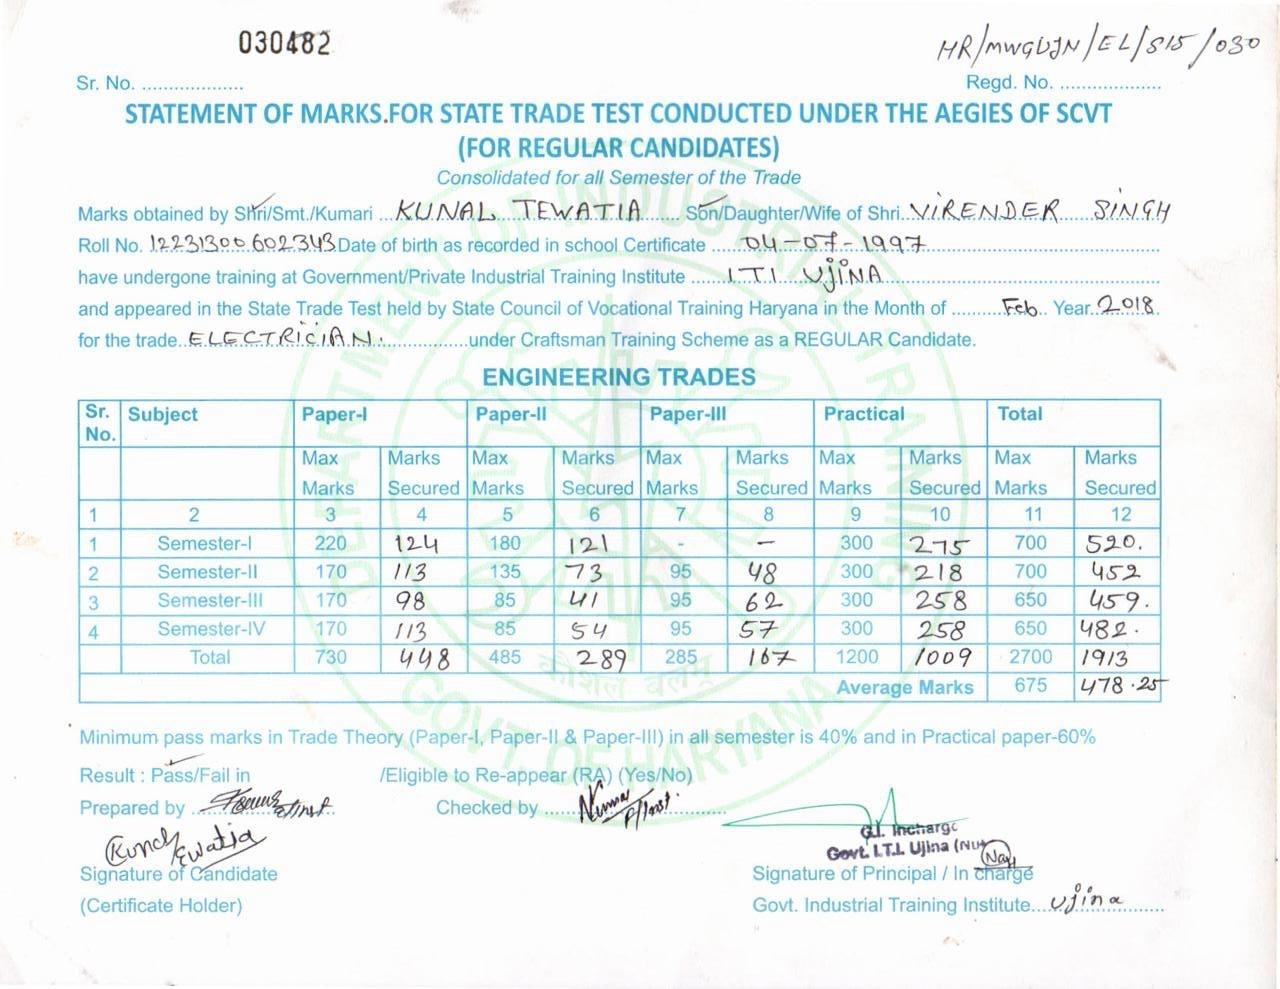 030482
HR/MWGUJN/EL/S15/030
Sr. No. ....................
Regd. No. ....................
STATEMENT OF MARKS.FOR STATE TRADE TEST CONDUCTED UNDER THE AEGIES OF SCVT
(FOR REGULAR CANDIDATES)
Consolidated for all Semester of the Trade
Marks obtained by Shri/Smt./Kumari ...KUNAL TEWATIA...... Son/Daughter/Wife of Shri..VIRENDER SINGH
Roll No. 12231300602343 Date of birth as recorded in school Certificate .....04-07-1997
have undergone training at Government/Private Industrial Training Institute ......ITI UJINA
and appeared in the State Trade Test held by State Council of Vocational Training Haryana in the Month of ..........Feb.. Year..2018.
for the trade..ELECTRICIAN..................under Craftsman Training Scheme as a REGULAR Candidate.
ENGINEERING TRADES
Sr. No. Subject Paper-I Paper-II Paper-III Practical Total
Max Marks Marks Secured Max Marks Marks Secured Max Marks Marks Secured Max Marks Marks Secured Max Marks Marks Secured
1 2 3 4 5 6 7 8 9 10 11 12
1 Semester-I 220 124 180 121 - – 300 275 700 520.
2 Semester-II 170 113 135 73 95 48 300 218 700 452
3 Semester-III 170 98 85 41 95 62 300 258 650 459.
4 Semester-IV 170 113 85 54 95 57 300 258 650 482.
Total 730 448 485 289 285 167 1200 1009 2700 1913
Average Marks 675 478.25
Minimum pass marks in Trade Theory (Paper-I, Paper-II & Paper-III) in all semester is 40% and in Practical paper-60%
Result : Pass/Fail in /Eligible to Re-appear (RA) (Yes/No)
Prepared by
Checked by
G.I. Incharge
Govt. I.T.I. Ujina (Nuh
Signature of Candidate
Signature of Principal / In charge
(Certificate Holder)
Govt. Industrial Training Institute....Ujina
DEPARTMENT OF INDUSTRIAL TRAINING
कौशलं बलम्
GOVT. OF HARYANA